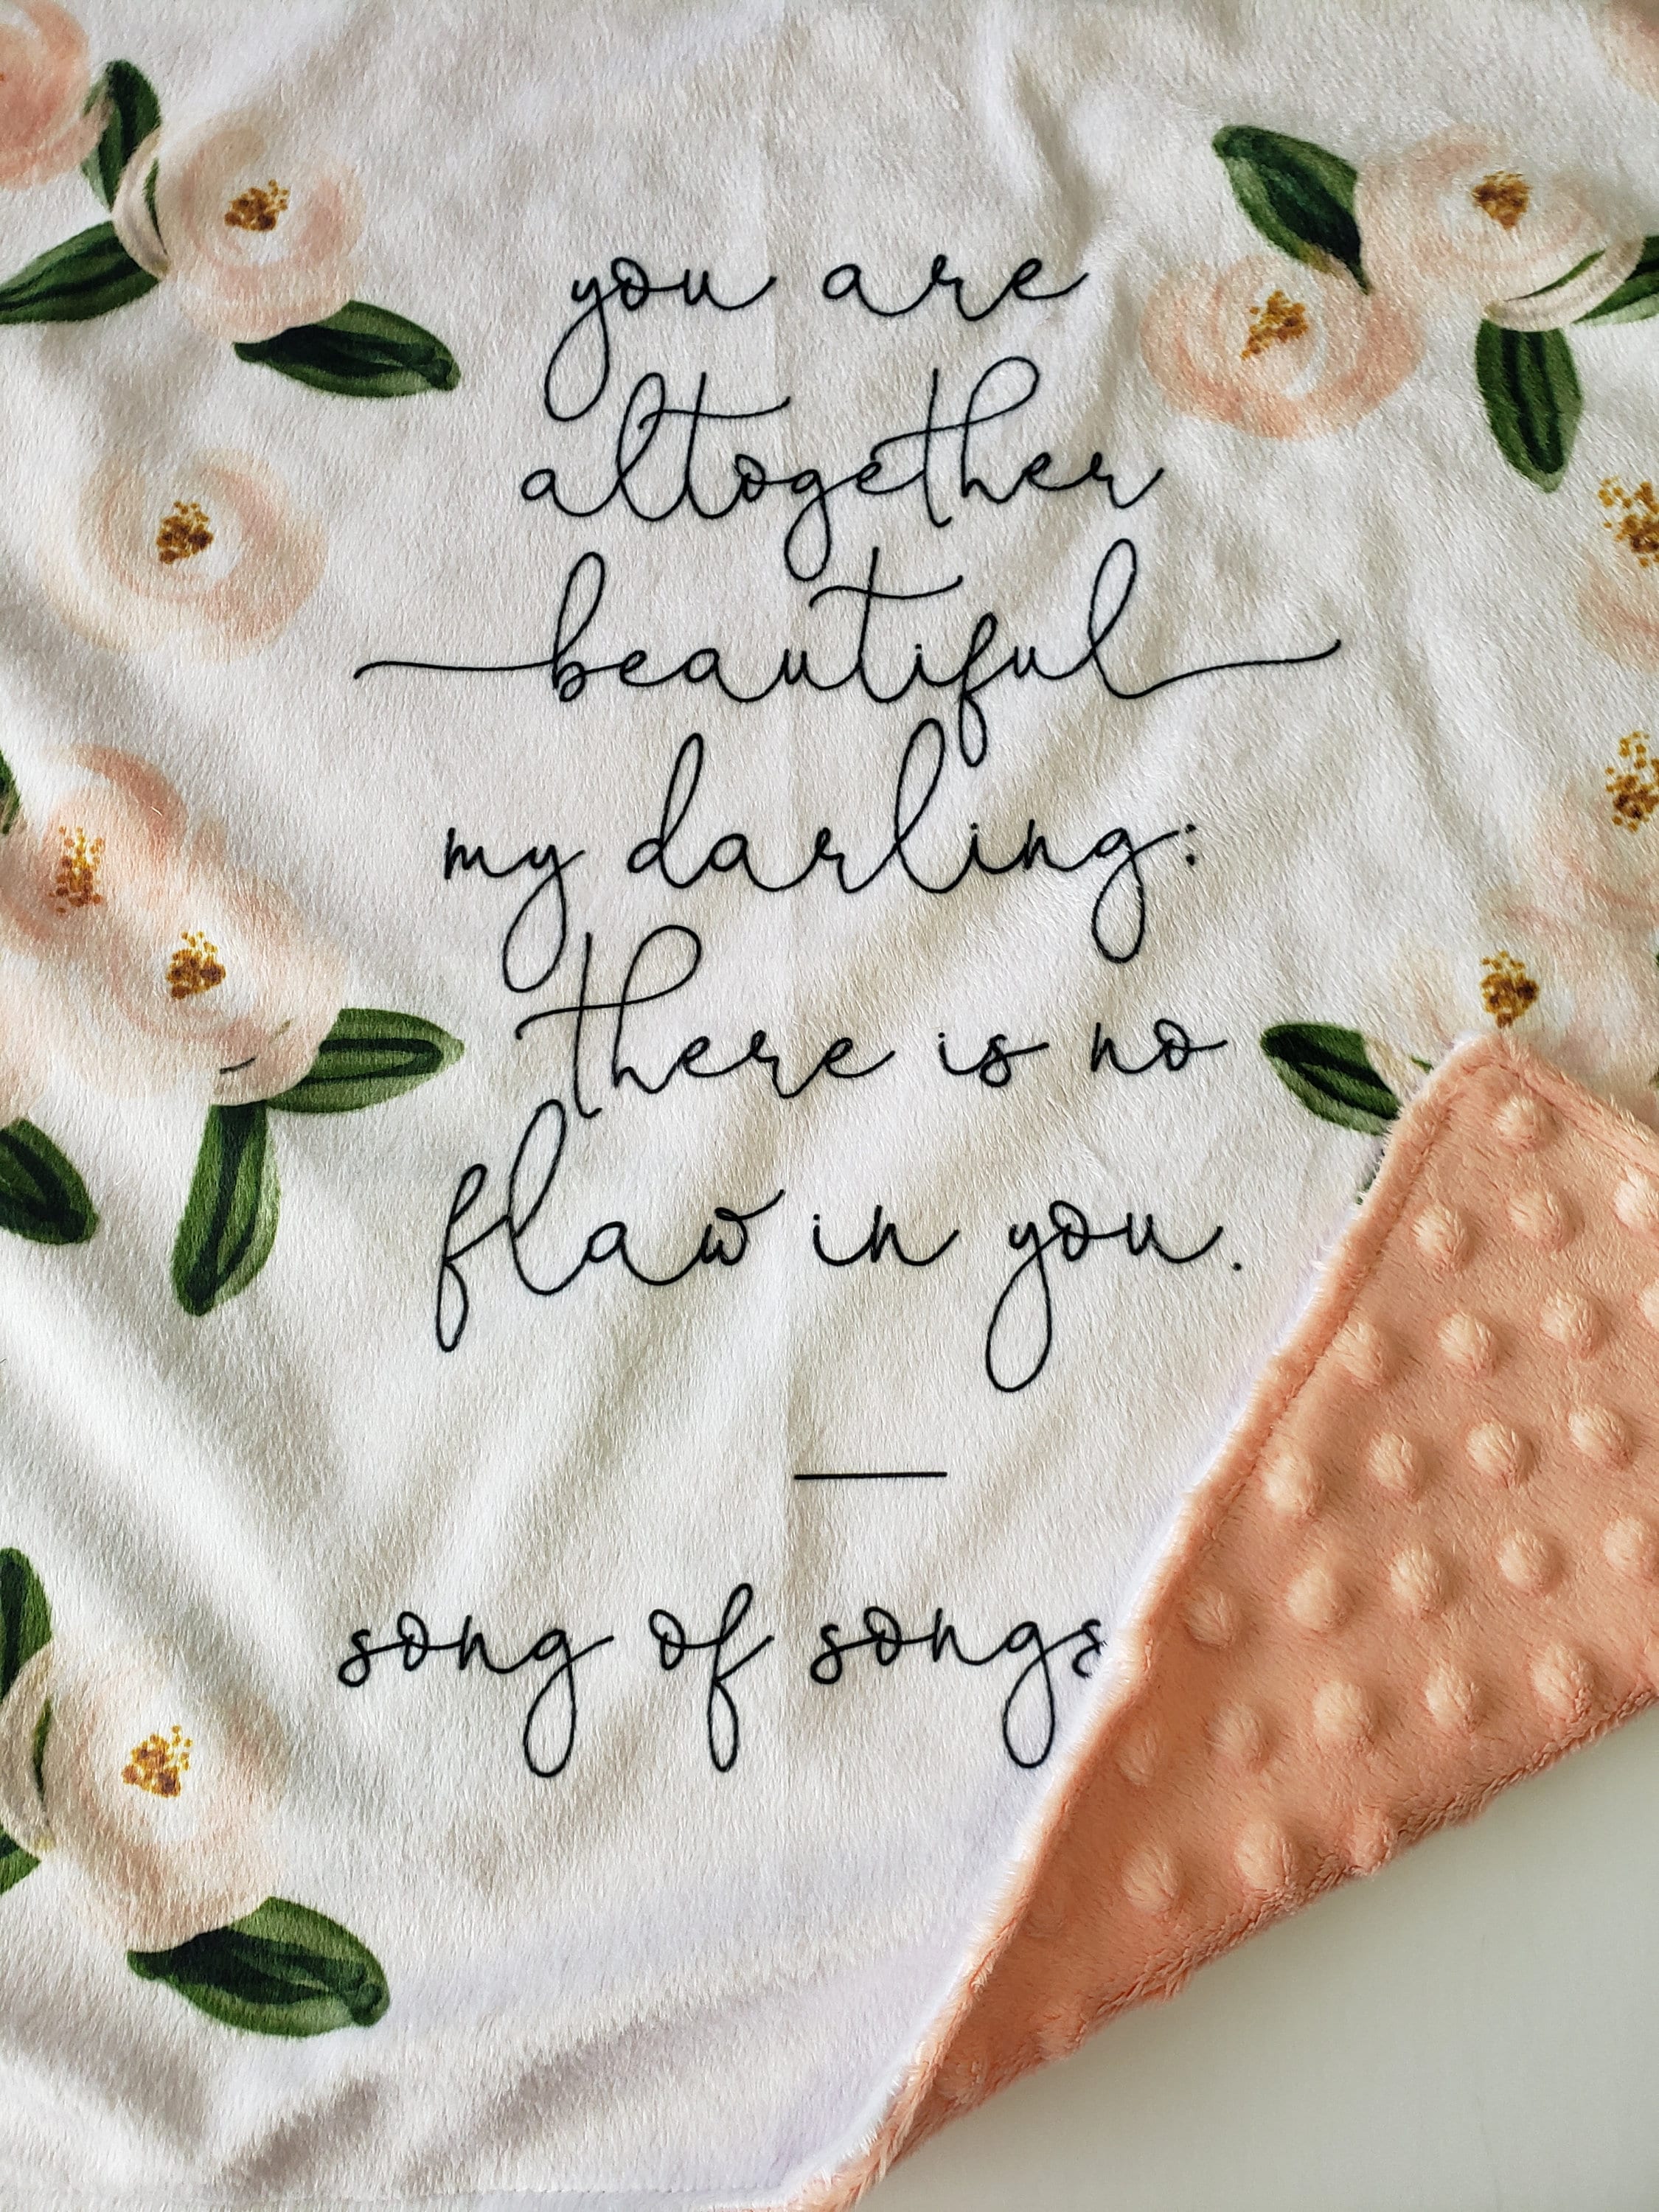 you are
altogether
beautiful
my darling:
there is no
flaw in you.
song of songs